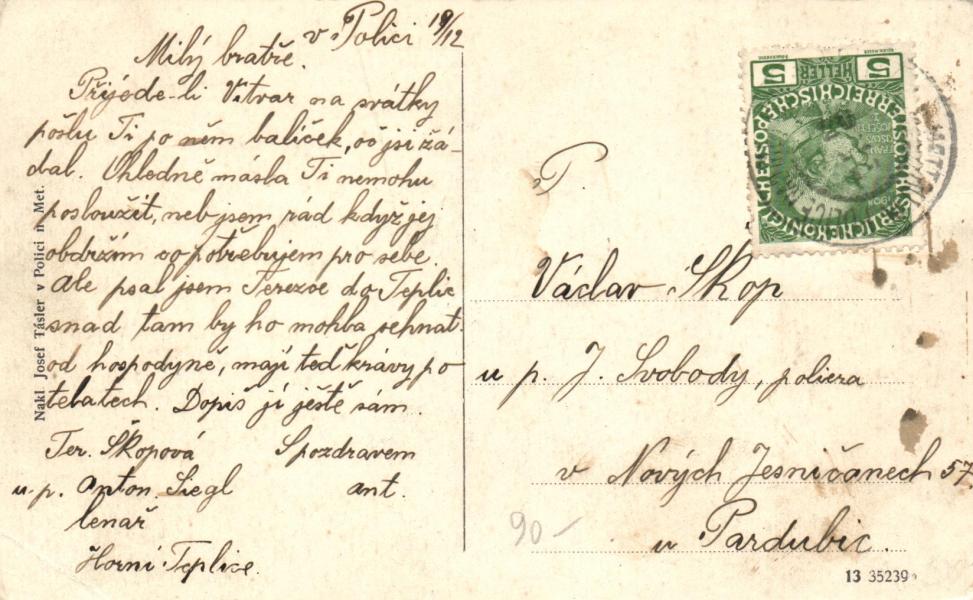 v Polici 19/12
Milý bratře.
Přijede-li Vitvar na svátky
pošlu Ti po něm balíček, oč jsi žá-
dal. Ohledně másla Ti nemohu
posloužit, neb jsem rád když jej
obdržím co potřebujem pro sebe.
Ale psal jsem Terezce do Teplic
snad tam by ho mohla sehnat
od hospodyně, mají teď krávy po
telatech. Dopiš jí ještě sám.
Ter. Škopová
u.p. Anton. Siegl
lenař
Horní Teplice.
S pozdravem
Ant.
Nakl Josef Tásler v Polici n Met.
T.
Václav Škop
u p. J. Svobody, poliera
v Nových Jesničanech 57
u Pardubic.
90-
13 35239
5 HELLER 5
KAISERLICHE KÖNIGLICHE ÖSTERREICHISCHE POST
1908